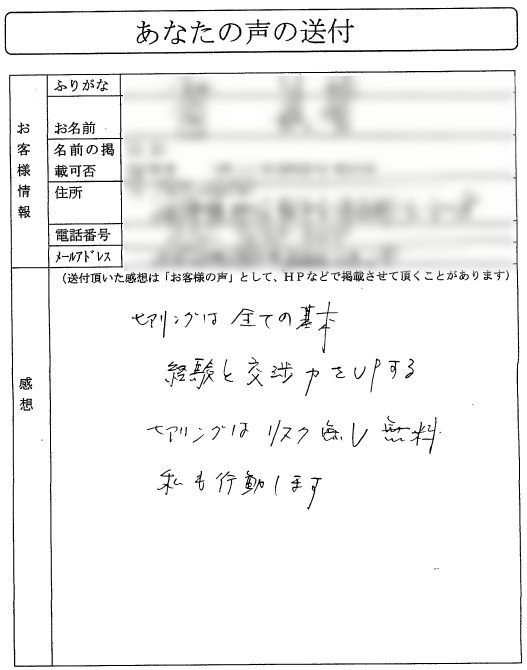 あなたの声の送付
お客様情報
ふりがな
お名前
名前の掲
載可否
住所
電話番号
ﾒｰﾙｱﾄﾞﾚｽ
感想
(送付頂いた感想は「お客様の声」として、HPなどで掲載させて頂くことがあります)
ヒアリングは全ての基本
経験と交渉力をUPする
ヒアリングはリスク無し無料
私も行動します